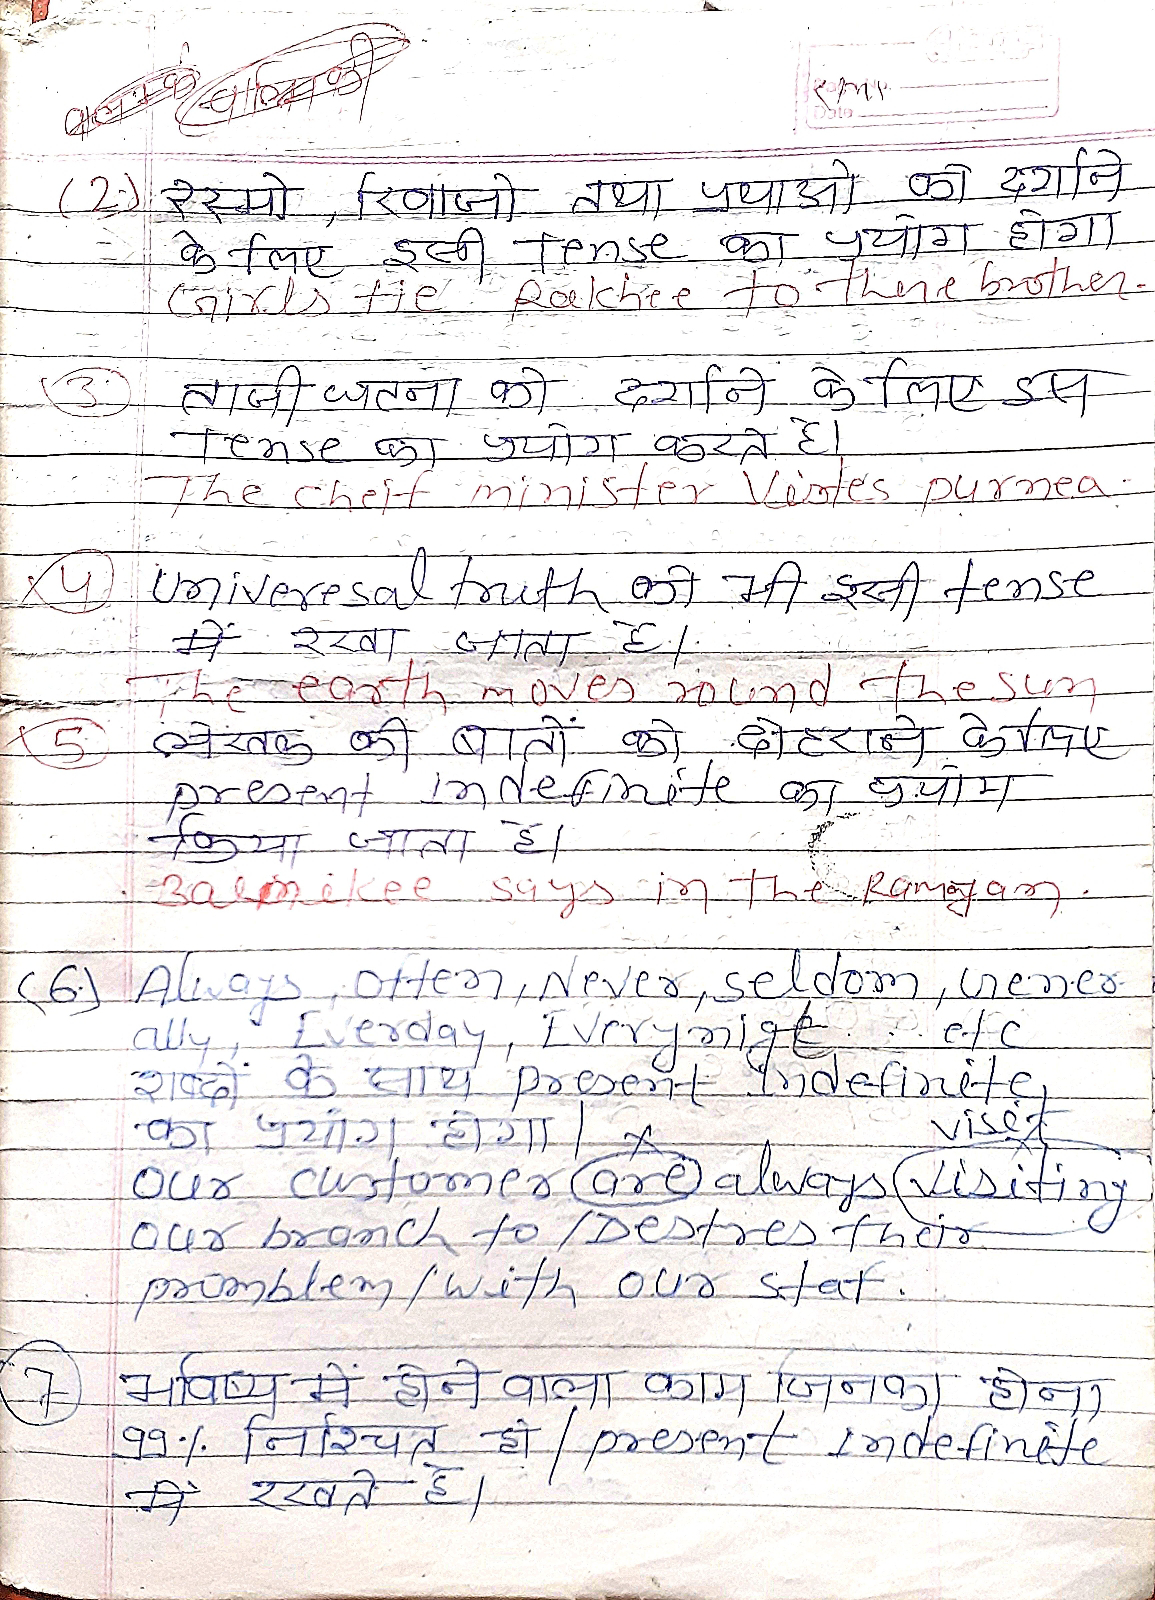 (2.) रस्मो, रिवाजो तथा प्रथाओ को दर्शाने
के लिए इसी Tense का प्रयोग होगा
Girls tie Rakhee to there brother.
(3.) ताजी घटना को दर्शाने के लिए इस
Tense का प्रयोग करते है।
The cheif minister Vistes purnea.
(4) Univeresal truth को भी इसी tense
में रखा जाता है।
The earth moves round the sun
(5) लेखक की बातों को दोहराने के लिए
present Indefinite का प्रयोग
किया जाता है।
Balmikee says in the Ramayan.
(6.) Always, Often, Never, seldom, Gener
ally, Everday, Everynigt etc
शब्दों के साथ present Indefinite
का प्रयोग होगा।
visit
Our customer are always visiting
our branch to / Destres their
promblem / with our staf.
7 भविष्य में होने वाला काम जिनका होना
99% निश्चित हो / present Indefinite
में रखते है।